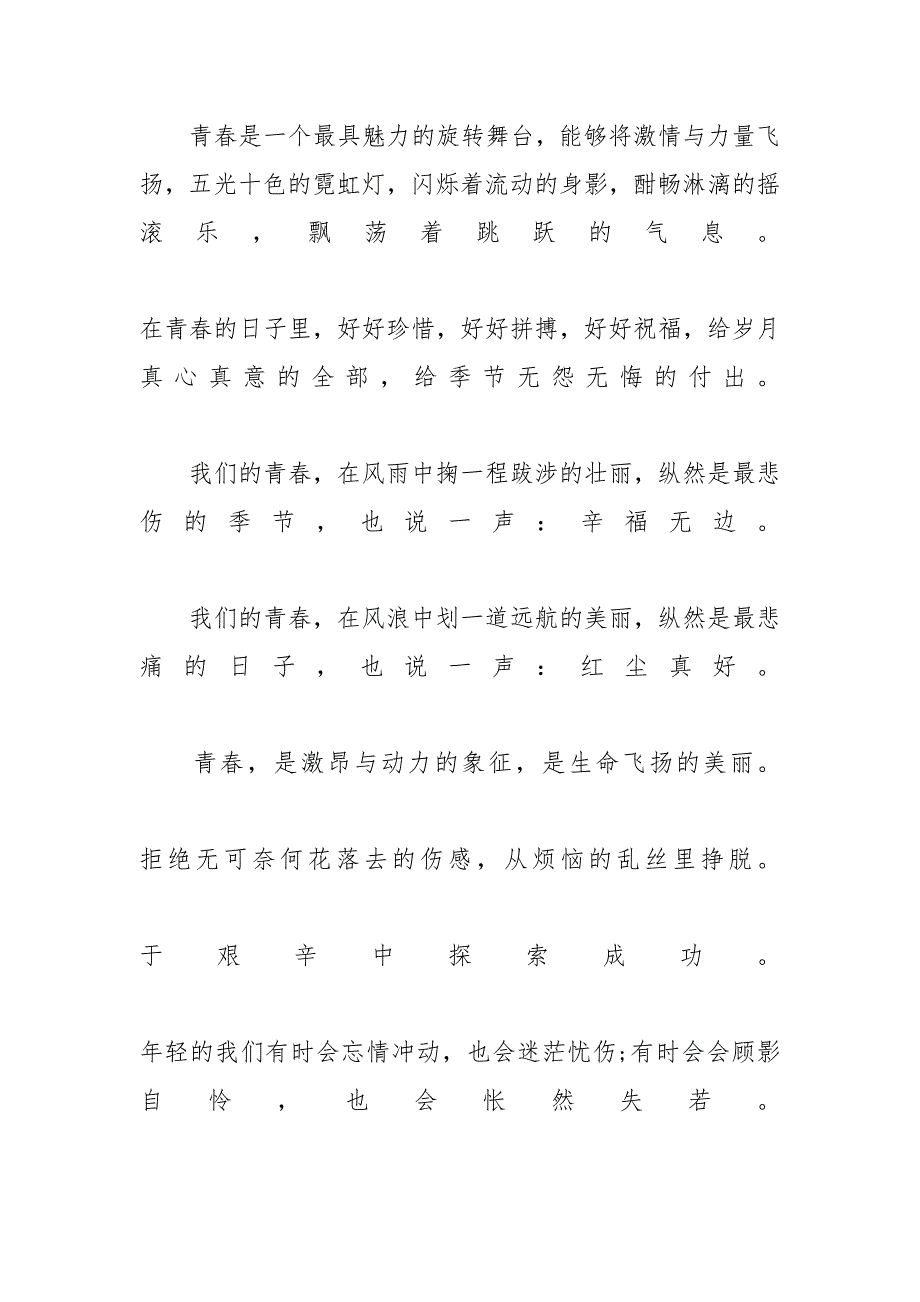 青春是一个最具魅力的旋转舞台，能够将激情与力量飞
扬，五光十色的霓虹灯，闪烁着流动的身影，酣畅淋漓的摇
滚乐，飘荡着跳跃的气息。
在青春的日子里，好好珍惜，好好拼搏，好好祝福，给岁月
真心真意的全部，给季节无怨无悔的付出。
我们的青春，在风雨中掬一程跋涉的壮丽，纵然是最悲
伤的季节，也说一声：辛福无边。
我们的青春，在风浪中划一道远航的美丽，纵然是最悲
痛的日子，也说一声：红尘真好。
青春，是激昂与动力的象征，是生命飞扬的美丽。
拒绝无可奈何花落去的伤感，从烦恼的乱丝里挣脱。
于艰辛中探索成功。
年轻的我们有时会忘情冲动，也会迷茫忧伤;有时会会顾影
自怜，也会怅然失若。